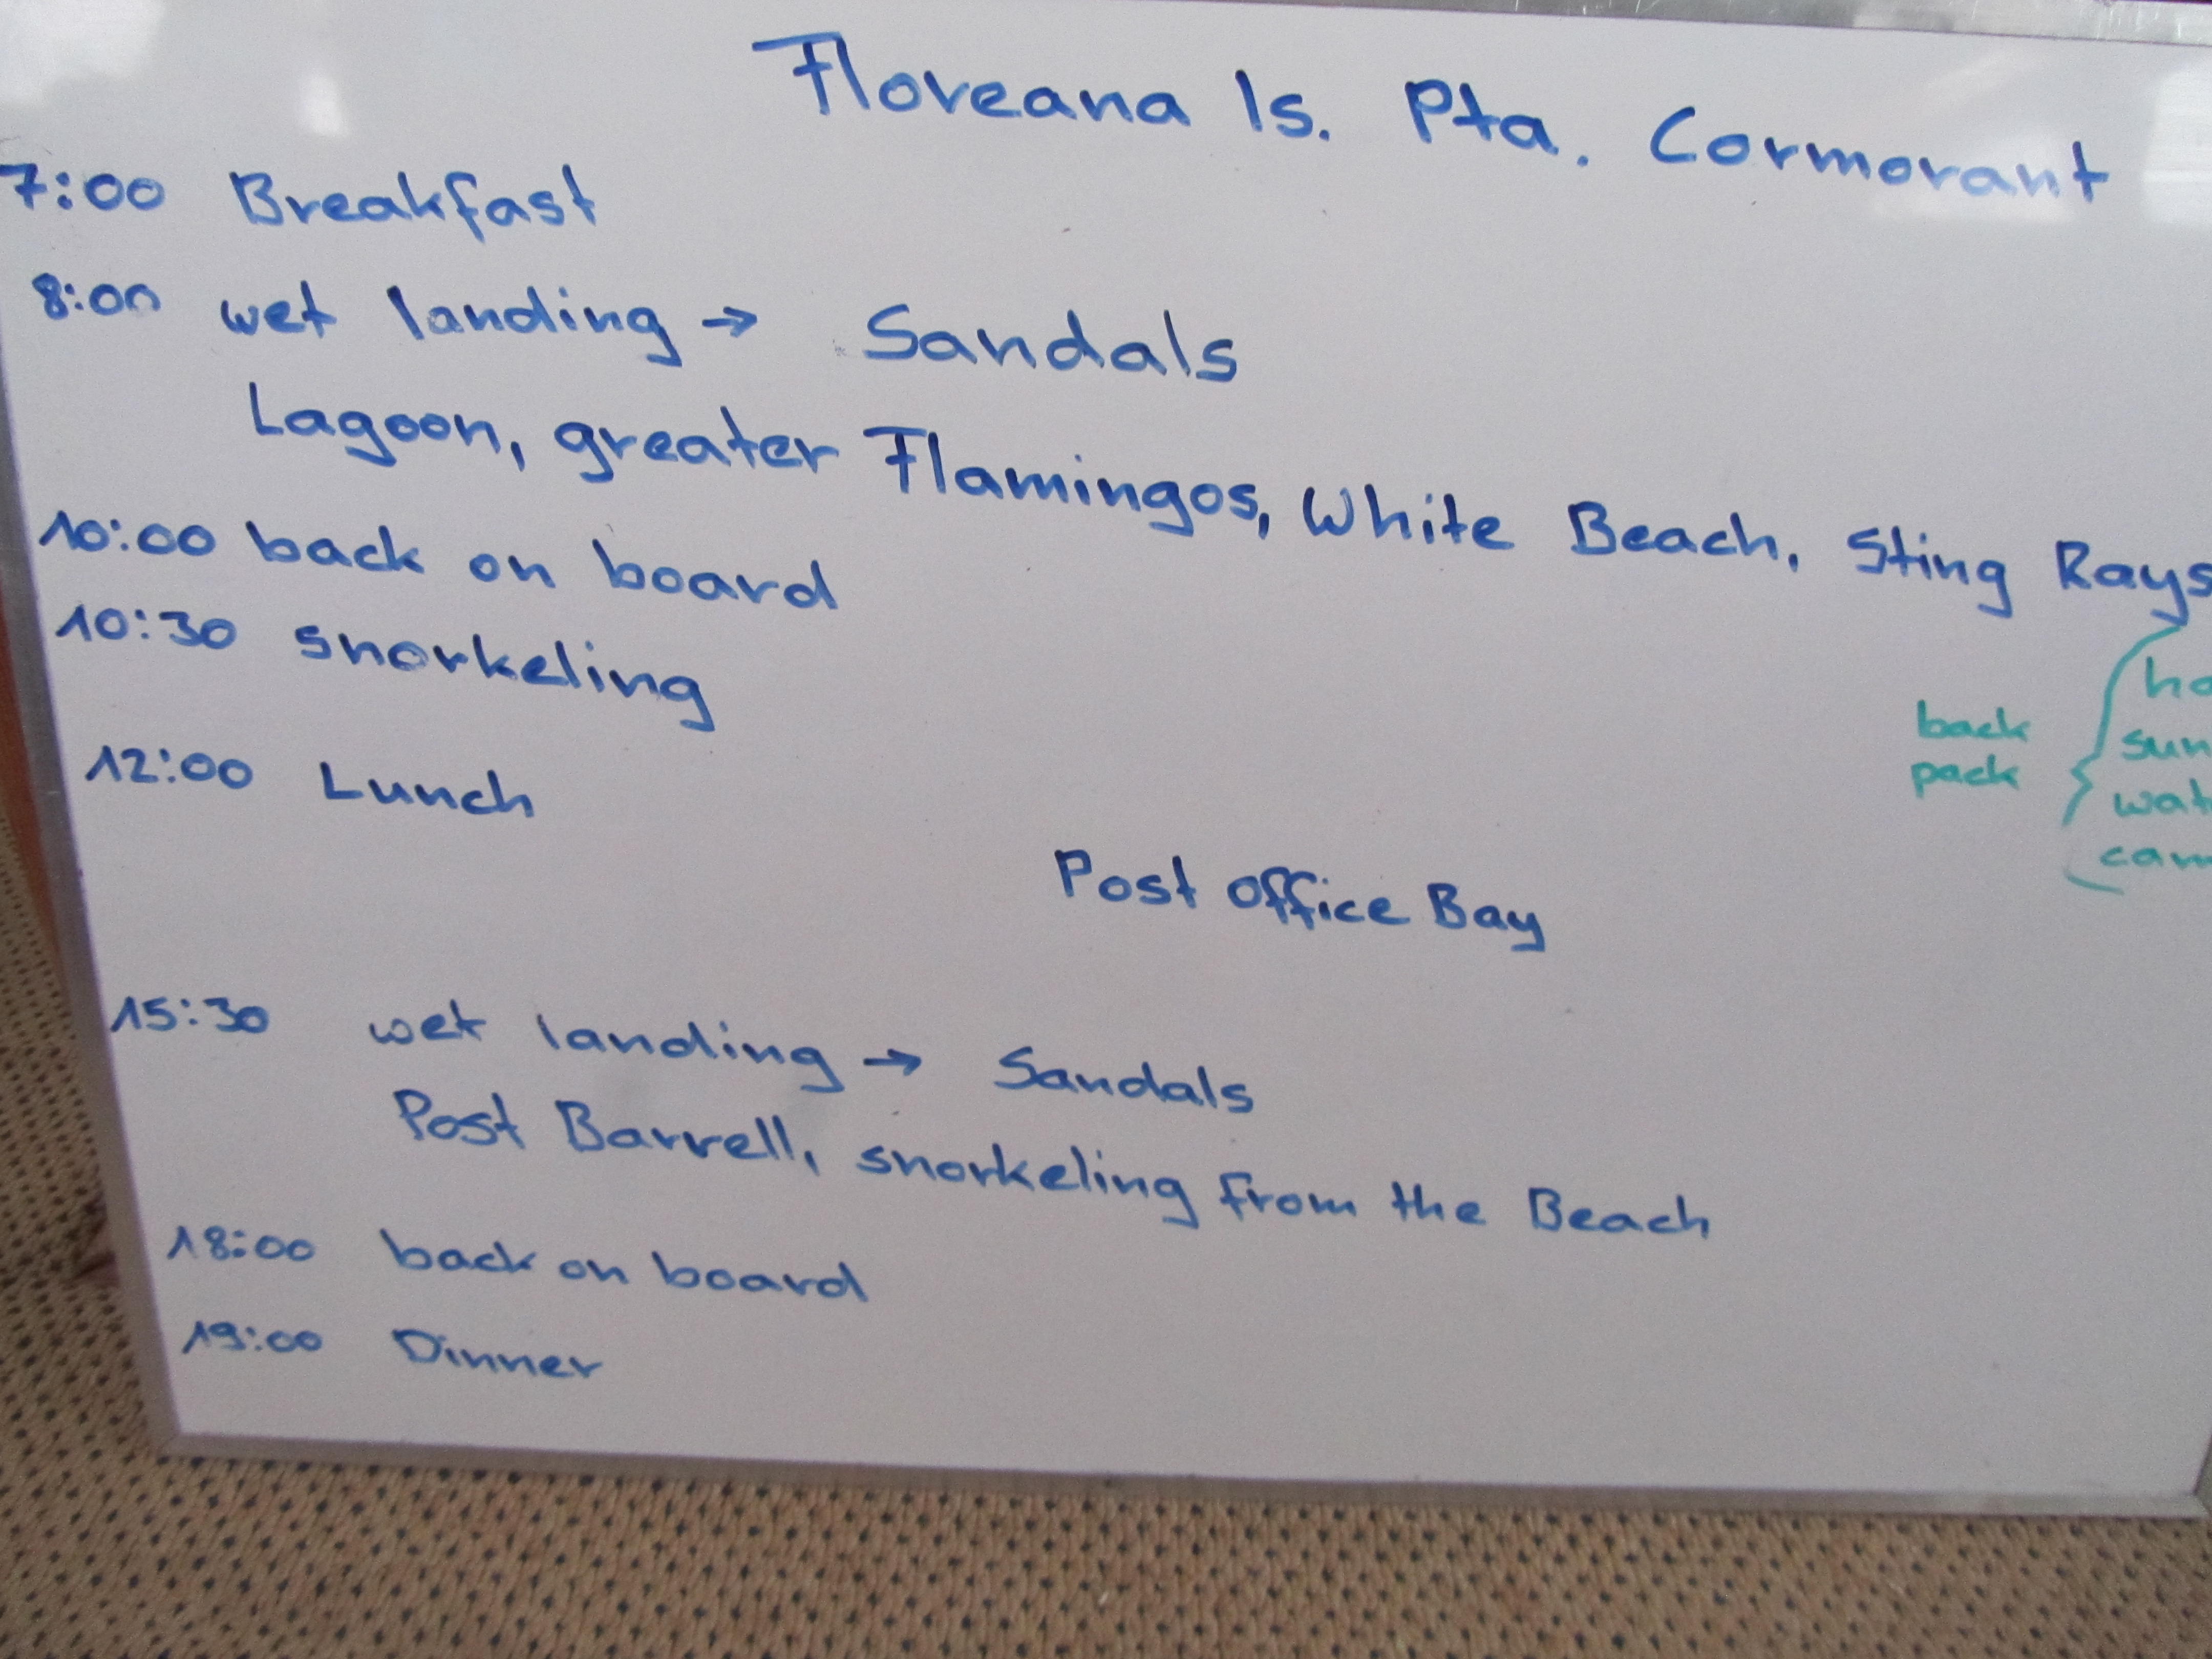 Floreana Is. Pta. Cormorant
7:00 Breakfast
8:00 wet landing → Sandals
Lagoon, greater Flamingos, White Beach, Sting Rays
10:00 back on board
10:30 snorkeling
back
pack
12:00 Lunch
Post Office Bay
15:30 wet landing → Sandals
Post Barrell, snorkeling from the Beach
18:00 back on board
19:00 Dinner